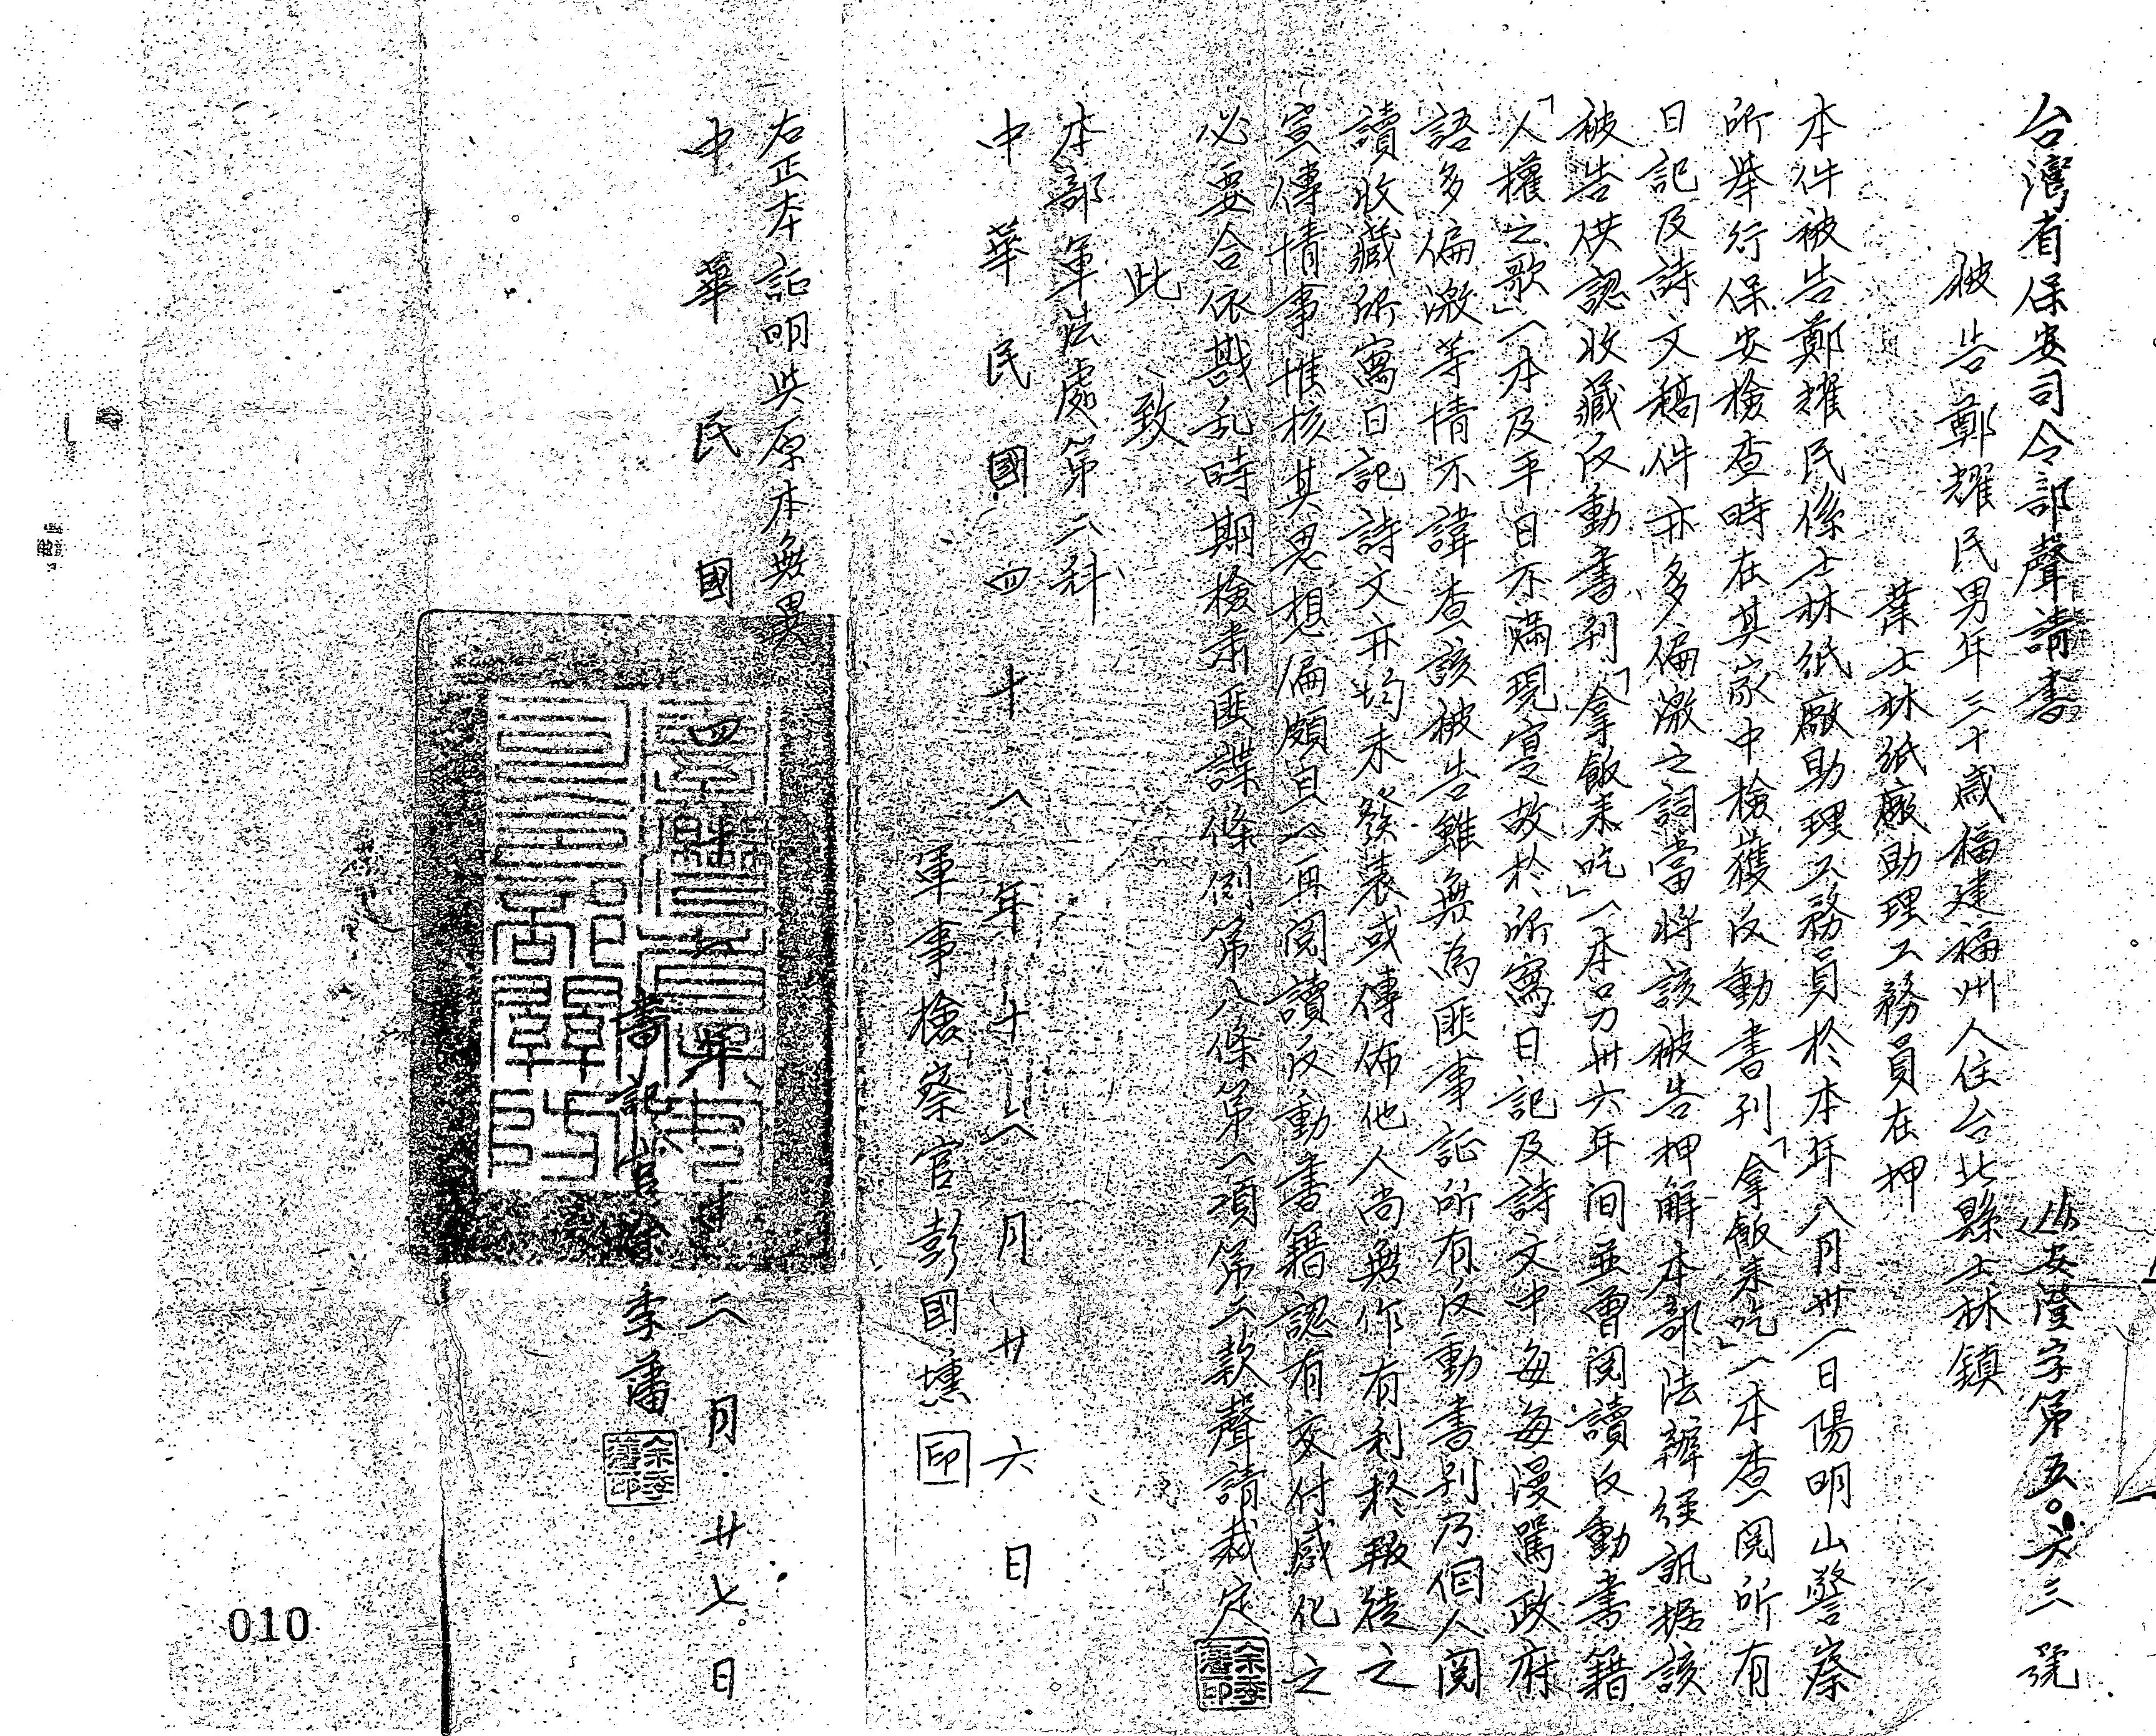 台灣省保安司令部聲請書
安澄字第五〇六三號
被告鄭耀民男年三十歲福建福州人住台北縣士林鎮
業士林紙廠助理工務員在押
本件被告鄭耀民係士林紙廠助理工務員於本年八月卅一日陽明山警察
所舉行保安檢查時在其家中檢獲反動書刊「拿飯來吃」一本查閱所有
日記及詩文稿件亦多偏激之詞當將該被告押解本部法辦經訊據該
被告供認收藏反動書刊「拿飯來吃」一本另卅六年间並曾閱讀反動書籍
「人權之歌」一本及平日不滿現實故於所寫日記及詩文中每每漫罵政府
語多偏激等情不諱查該被告雖無為匪事証所有反動書刊乃個人閱
讀收藏所寫日記詩文亦均未發表或傳佈他人尚無作有利於叛徒之
宣傳情事惟核其思想偏頗且一再閱讀反動書籍認有交付感化之
必要合依戡乱時期檢肅匪諜條例第八條第一項第二款聲請裁定
此致
本部軍法處第二科
中華民國四十八年十二月廿六日
軍事檢察官彭國壎 印
右正本証明與原本無異
中華民國四十
二月廿七日
書記官徐季藩
010